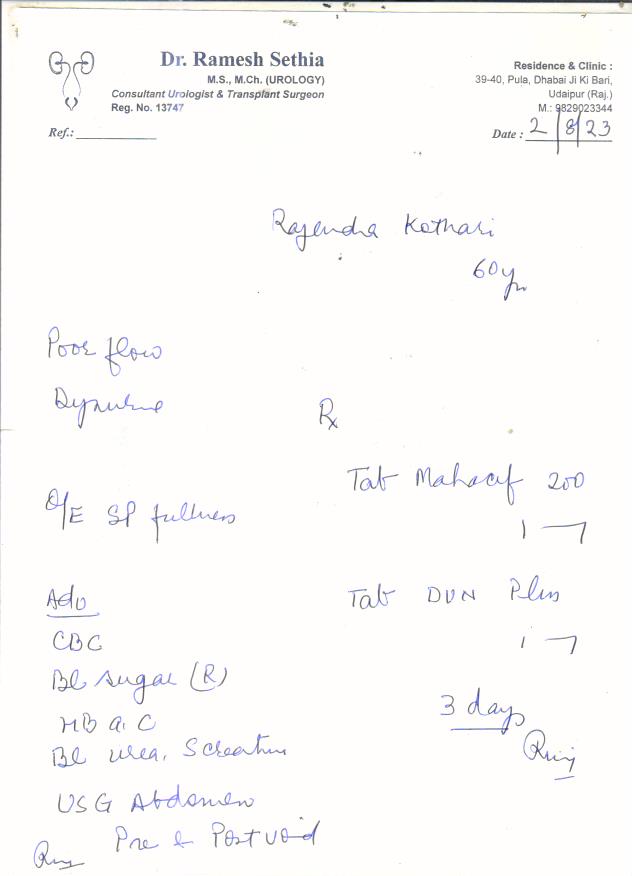 Dr. Ramesh Sethia
M.S., M.Ch. (UROLOGY)
Consultant Urologist & Transplant Surgeon
Reg. No. 13747
Ref.:
Residence & Clinic :
39-40, Pula, Dhabai Ji Ki Bari,
Udaipur (Raj.)
M.: 9829023344
Date : 2/8/23
Rajendra Kothari
60yr
Poor flow
Dysuria
Rx
O/E SP fullness
Tab Mahacef 200
1 —7
Adv
Tab DVN Plus
1 —7
CBC
Bl sugar (R)
HB a1C
3 days
Bl urea, S creatin
USG Abdomen
Pre & Post void